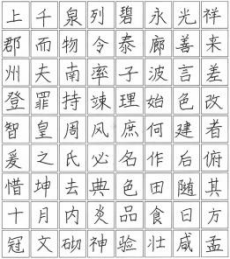 上千泉列碧永光祥
郡而物令泰廊善来
州夫南率子波言差
登罪持竦理始色改
智皇周风庶何建者
爰之氏必名作后俯
惜坤去典色田随其
十月内炎品食日方
冠文砌神验壮咸孟